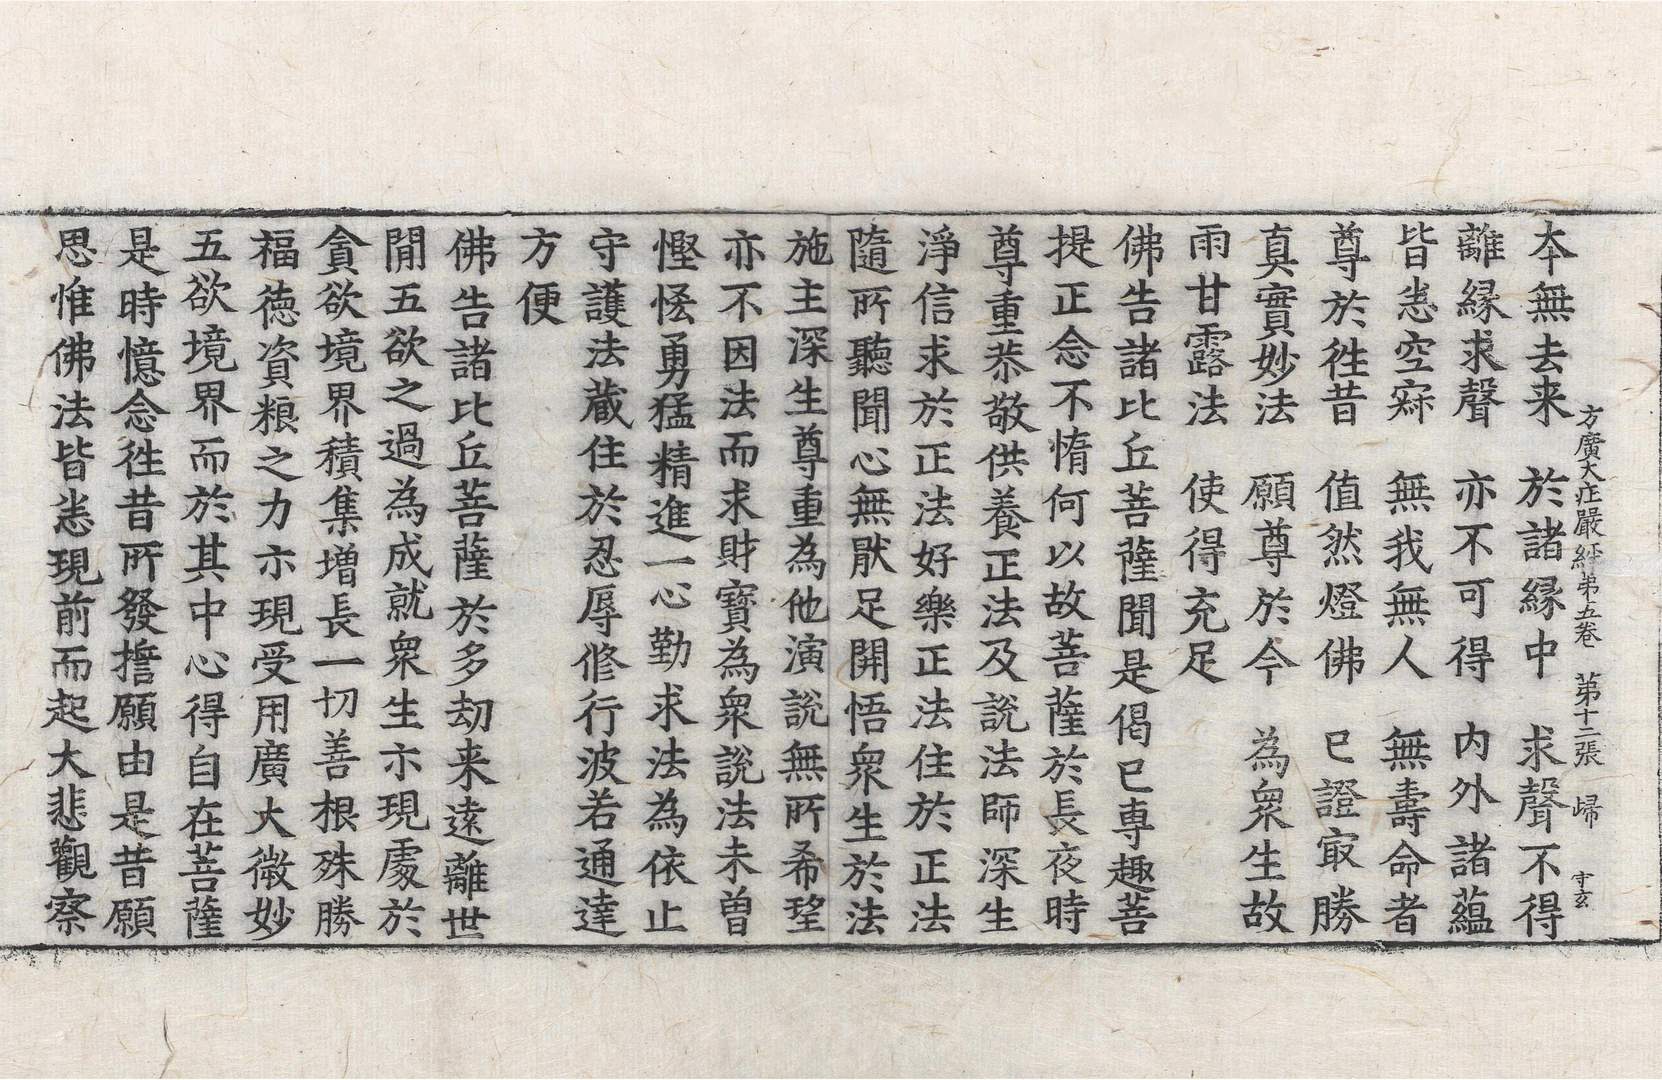 方廣大庄嚴經第五卷　第十二張　歸　守玄
本無去来　於諸縁中　求聲不得
離縁求聲　亦不可得　内外諸蘊
皆悉空寂　無我無人　無壽命者
尊於徃昔　值然燈佛　已證㝡勝
真實妙法　願尊於今　為衆生故
雨甘露法　使得充足
佛告諸比丘菩薩聞是偈已專趣菩
提正念不惰何以故菩薩於長夜時
尊重恭敬供養正法及說法師深生
淨信求於正法好樂正法住於正法
隨所聽聞心無猒足開悟衆生於法
施主深生尊重為他演說無所希望
亦不因法而求財寶為衆說法未曽
慳恡勇猛精進一心勤求法為依止
守護法藏住於忍辱修行波若通達
方便
佛告諸比丘菩薩於多劫来遠離世
間五欲之過為成就衆生示現處於
貪欲境界積集增長一切善根殊勝
福德資粮之力示現受用廣大微妙
五欲境界而於其中心得自在菩薩
是時憶念徃昔所發擔願由是昔願
思惟佛法皆悉現前而起大悲觀察